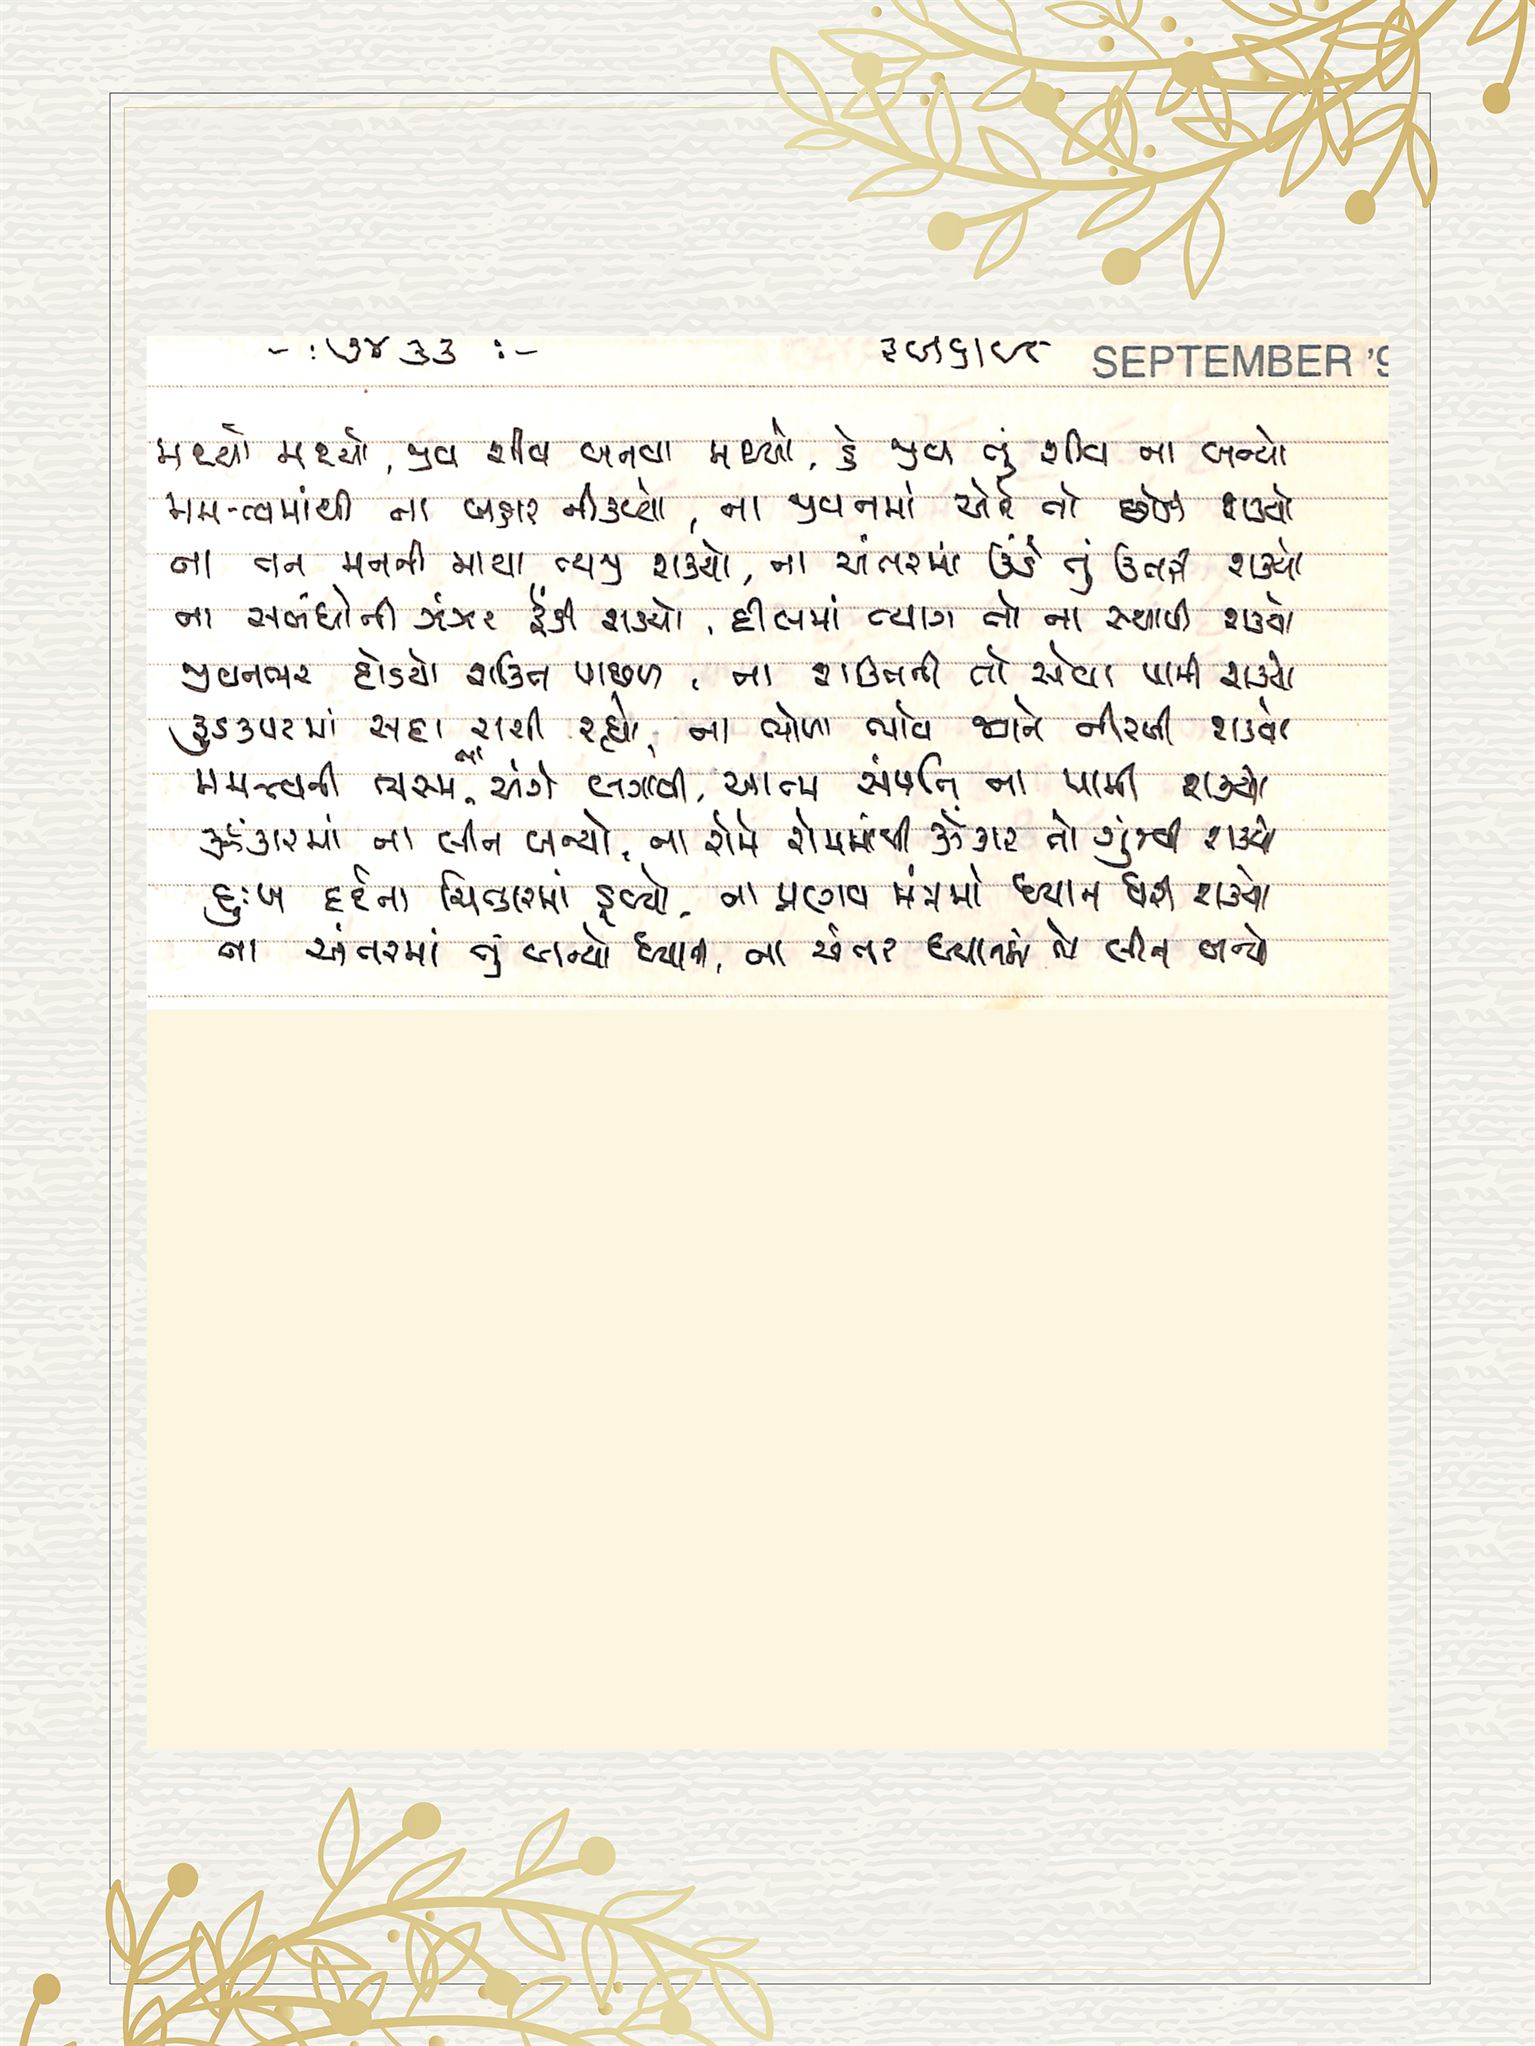 -: ૭૪૩૩ :-
SEPTEMBER '9
મથ્યો મથ્યો, જીવ શીવ બનવા મથ્યો, હે જીવ તું શીવ ના બન્યો
મમત્વમાંથી ના બહાર નીકળ્યો, ના જીવનમાં એને તો છોડી શક્યો
ના તન મનની માયા ત્યજી શક્યો, ના અંતરમાં ઉંડે તું ઉતરી શક્યો
ના સબંધોની ઝંઝર ફેંકી શક્યો, દીલમાં ત્યાગ તો ના સ્થાપી શક્યો
જીવનભર દોડયો શક્તિ પાછળ, ના શક્તિની તો સેવા પામી શક્યો
કુડકપટમાં સદા રાચી રહ્યો, ના ભોળા ભાવ જાને નીરખી શક્યો
મમત્વની ભસ્મ ના અંગે લગાવી, આત્મ સંપત્તિ ના પામી શક્યો
ૐકારમાં ના લીન બન્યો, ના રોમે રોમમાંથી ૐકાર તો ગુંજી શક્યો
દુઃખ દર્દના ચિત્કારમાં ડૂબ્યો, ના પ્રણવ મંત્રમાં ધ્યાન ધરી શક્યો
ના અંતરમાં તું બન્યો ધ્યાન, ના અંતર ધ્યાનમાં લીન બન્યો